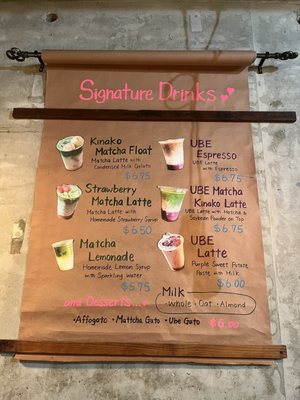 Signature Drinks
Kinako
Matcha Float
Matcha Latte with
Condensed Milk Gelato
$6.75
Strawberry
Matcha Latte
Matcha Latte with
Homemade Strawberry Syrup
$6.50
Matcha
Lemonade
Homemade Lemon Syrup
with Sparkling Water
$5.75
UBE
Espresso
UBE Latte
with Espresso
$6.75
UBE Matcha
Kinako Latte
UBE Latte with Matcha &
Soybean Powder on Top
$6.75
UBE
Latte
Purple Sweet Potato
Paste with Milk
$6.00
Milk
•Whole •Oat •Almond
and Desserts...
•Affogato •Mattcha Gato •Ube Gato $6.00